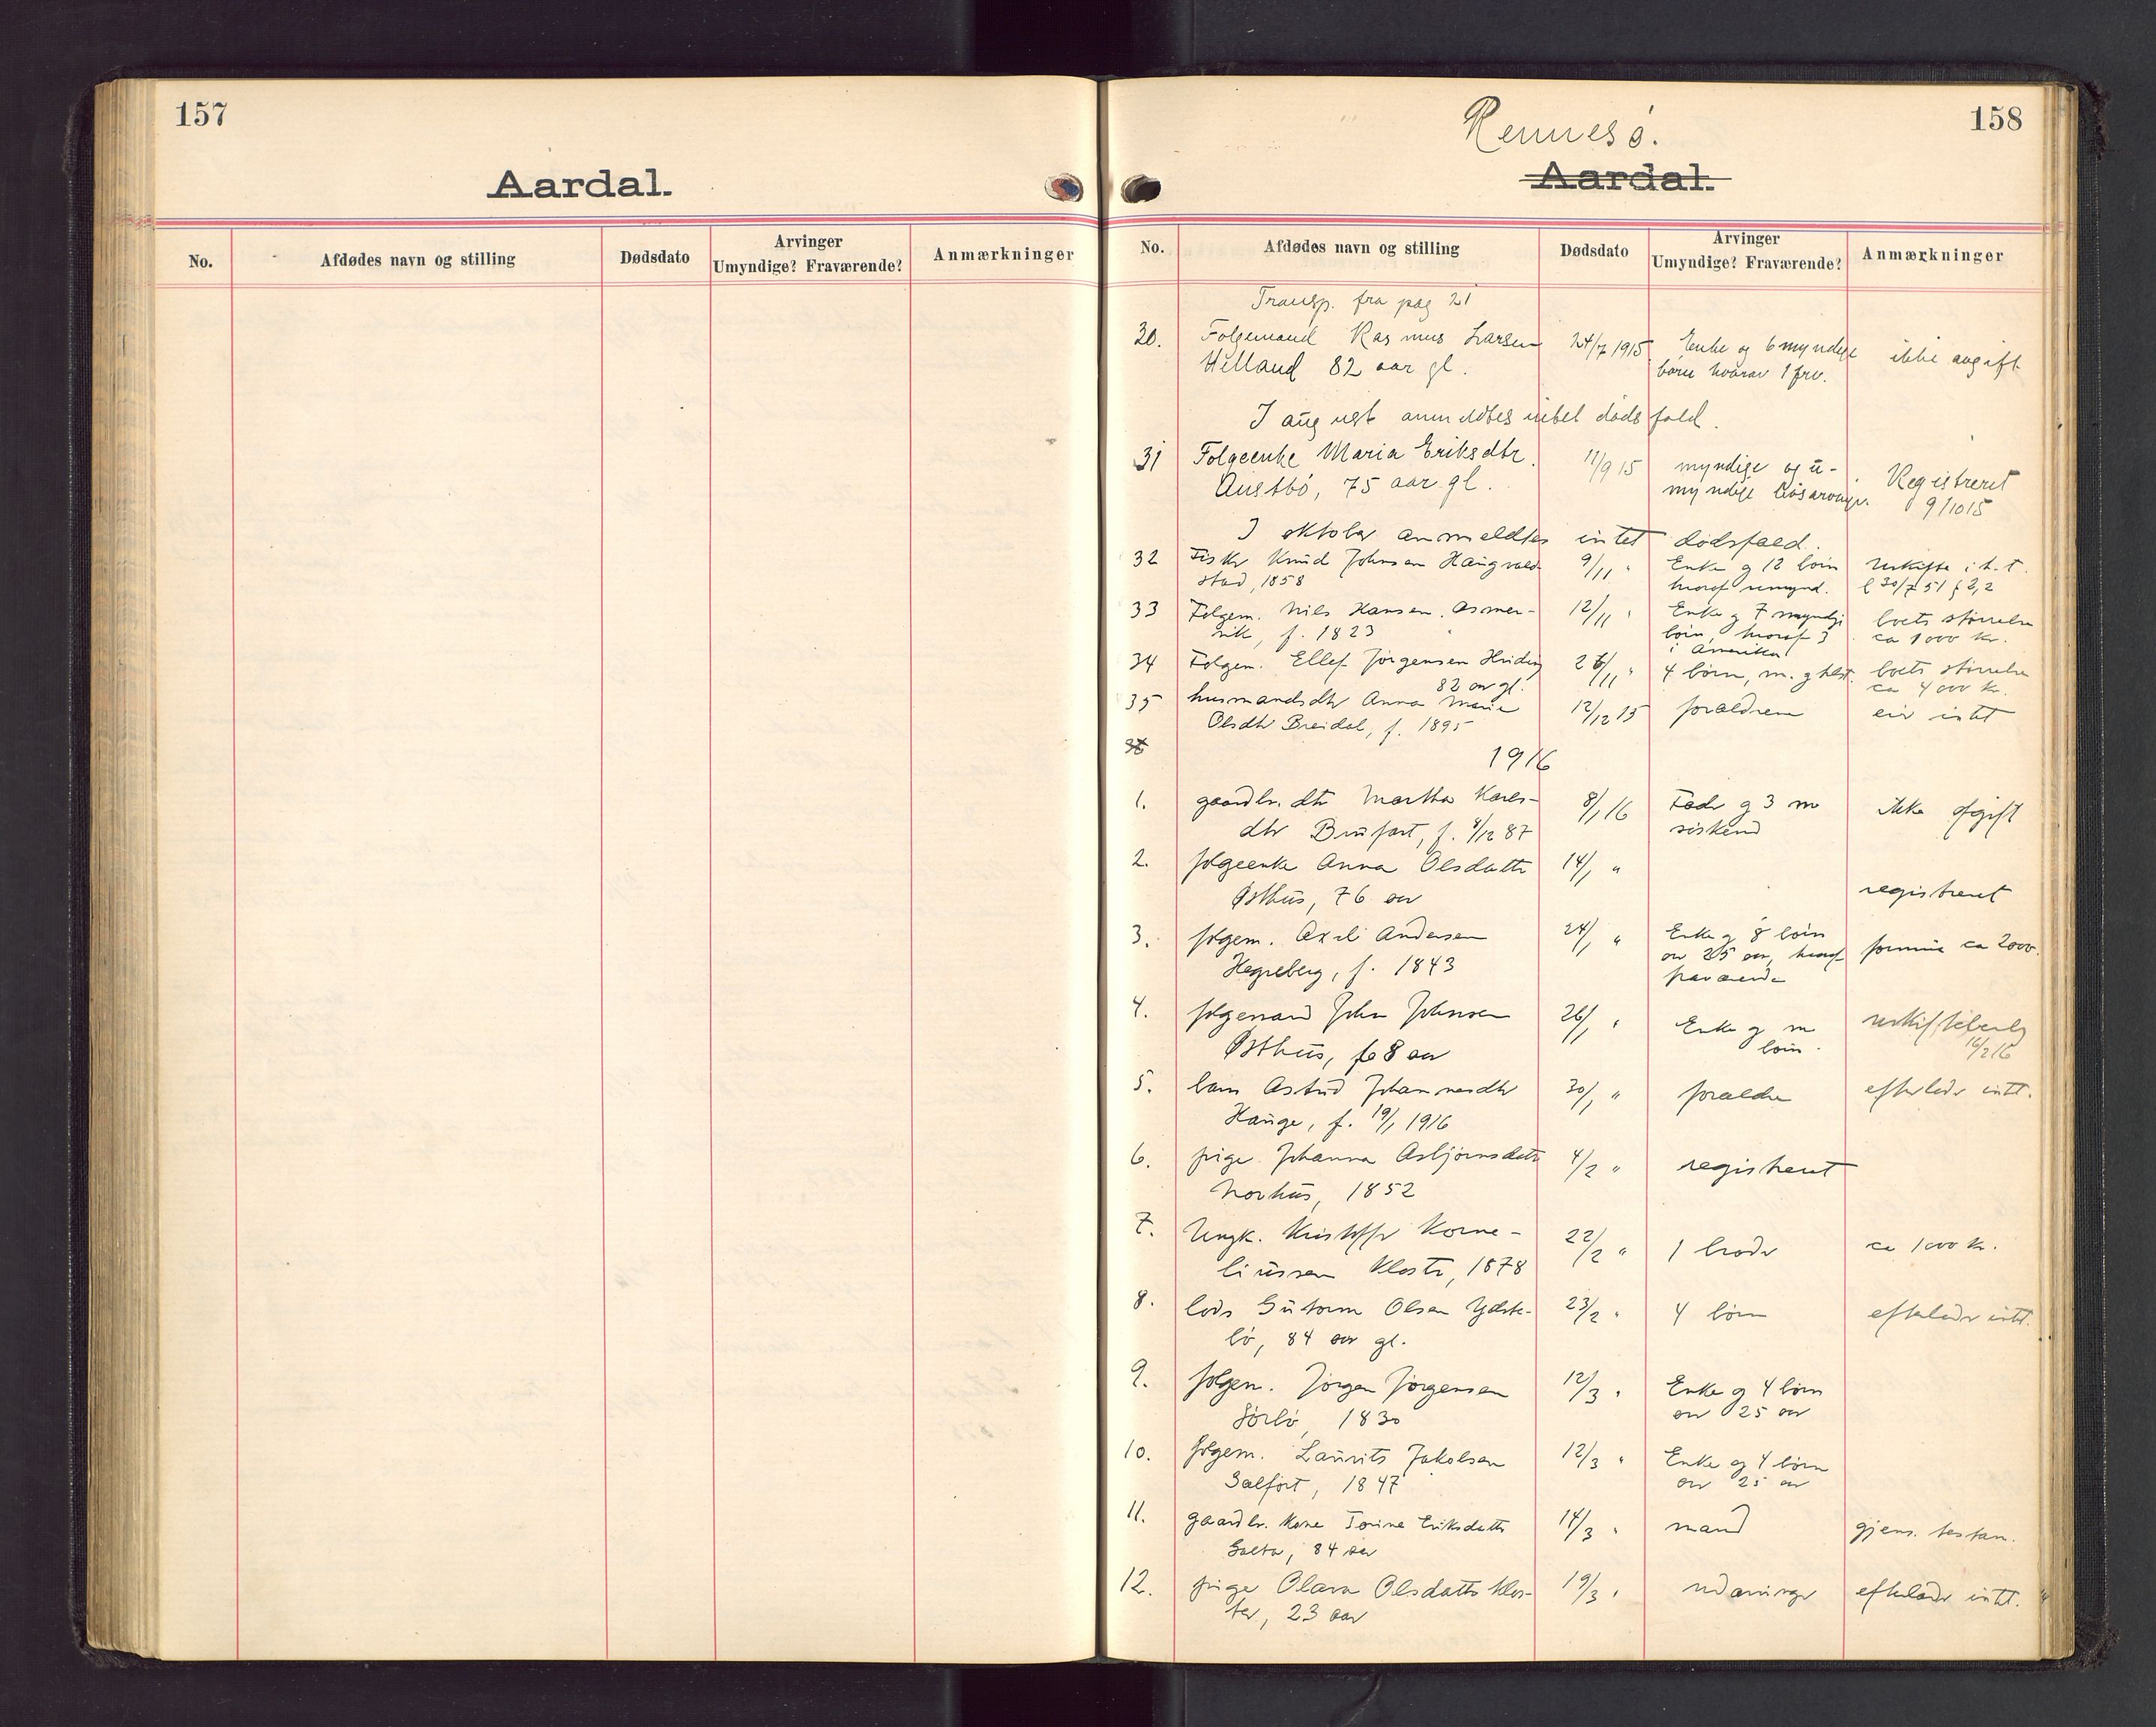 157
Aardal.
No. Afdødes navn og stilling Dødsdato Arvinger Umyndige? Fraværende? Anmærkninger
158
Rennesø.
Aardal.
No. Afdødes navn og stilling Dødsdato Arvinger Umyndige? Fraværende? Anmærkninger
Transp. fra pag 21
30. Folgemand Rasmus Larsen 24/7 1915 Enke og 6 myndige ikke avgift
Helland 82 aar gl. børn hvorav 1 frv.
I august anmeldtes intet dødsfald.
31 Folgeenke Maria Eriksdtr. 11/9 15 myndige og u- Registreret
Austbø, 75 aar gl. myndige livsarvinger. 9/10 15
I oktober anmeldtes intet dødsfald.
32 Fisker Knud Johnsen Haugvald- 9/11 " Enke og 12 børn uskifte i h. t.
stad, 1858 hvoraf umynd. l 30/7 51 § 2,2
33 Folgem. Nils Hansen Asmer- 12/11 " Enke og 7 myndige boets størrelse
vik, f. 1823 børn, hvoraf 3 ca 1000 kr.
i Amerika
34 Folgem. Ellef Jørgensen 26/11 " 4 børn, m. boets størrelse
82 aar gl. ca 4000 kr.
35 husmandsdtr Anna Marie 12/12 15 forældrene eier intet
Olsdtr Breidal, f. 1895
1916
1. gaardbr. dtr Martha Kars- 8/1 16 Fader og 3 m ikke afgift
dtr Brufart, f. 8/12 87 søskend
2. folgeenke Anna Olsdatter 14/1 "
Østhus, 76 aar registreret
3. folgem. Axel Andersen 24/1 " Enke og 8 børn formue ca 2000.
Hegreberg, f. 1843 over 25 aar, hvoraf
fraværende
4. folgemand John Johnsen 26/1 " Enke og m
Østhus, 68 aar børn. 16/2 16
5. barn Astrid Johannesdtr 30/1 " forældre efterlader intet.
Hauge, f. 19/1 1916
6. pige Johanna Asbjørnsdatter 4/2 " registreret
Norhus, 1852
7. Ungk. Kristoffer Korne- 22/2 " 1 broder ca 1000 kr.
liussen Kloster, 1878
8. lods Guttorm Olsen Ydste- 23/2 " 4 børn efterlader intet.
bø, 84 aar gl.
9. folgem. Jørgen Jørgensen 12/3 " Enke og 4 børn
Sørbø, 1830 over 25 aar
10. folgem. Laurits Jakobsen 12/3 " Enke og 4 børn
1847 over 25 aar
11. gaardbr. kone Torine Eriksdatter 14/3 " mand gjens. testam.
Galta, 84 aar
12. pige Olava Olsdatter Klos- 19/3 " udarvinger efterlader intet.
ter, 23 aar